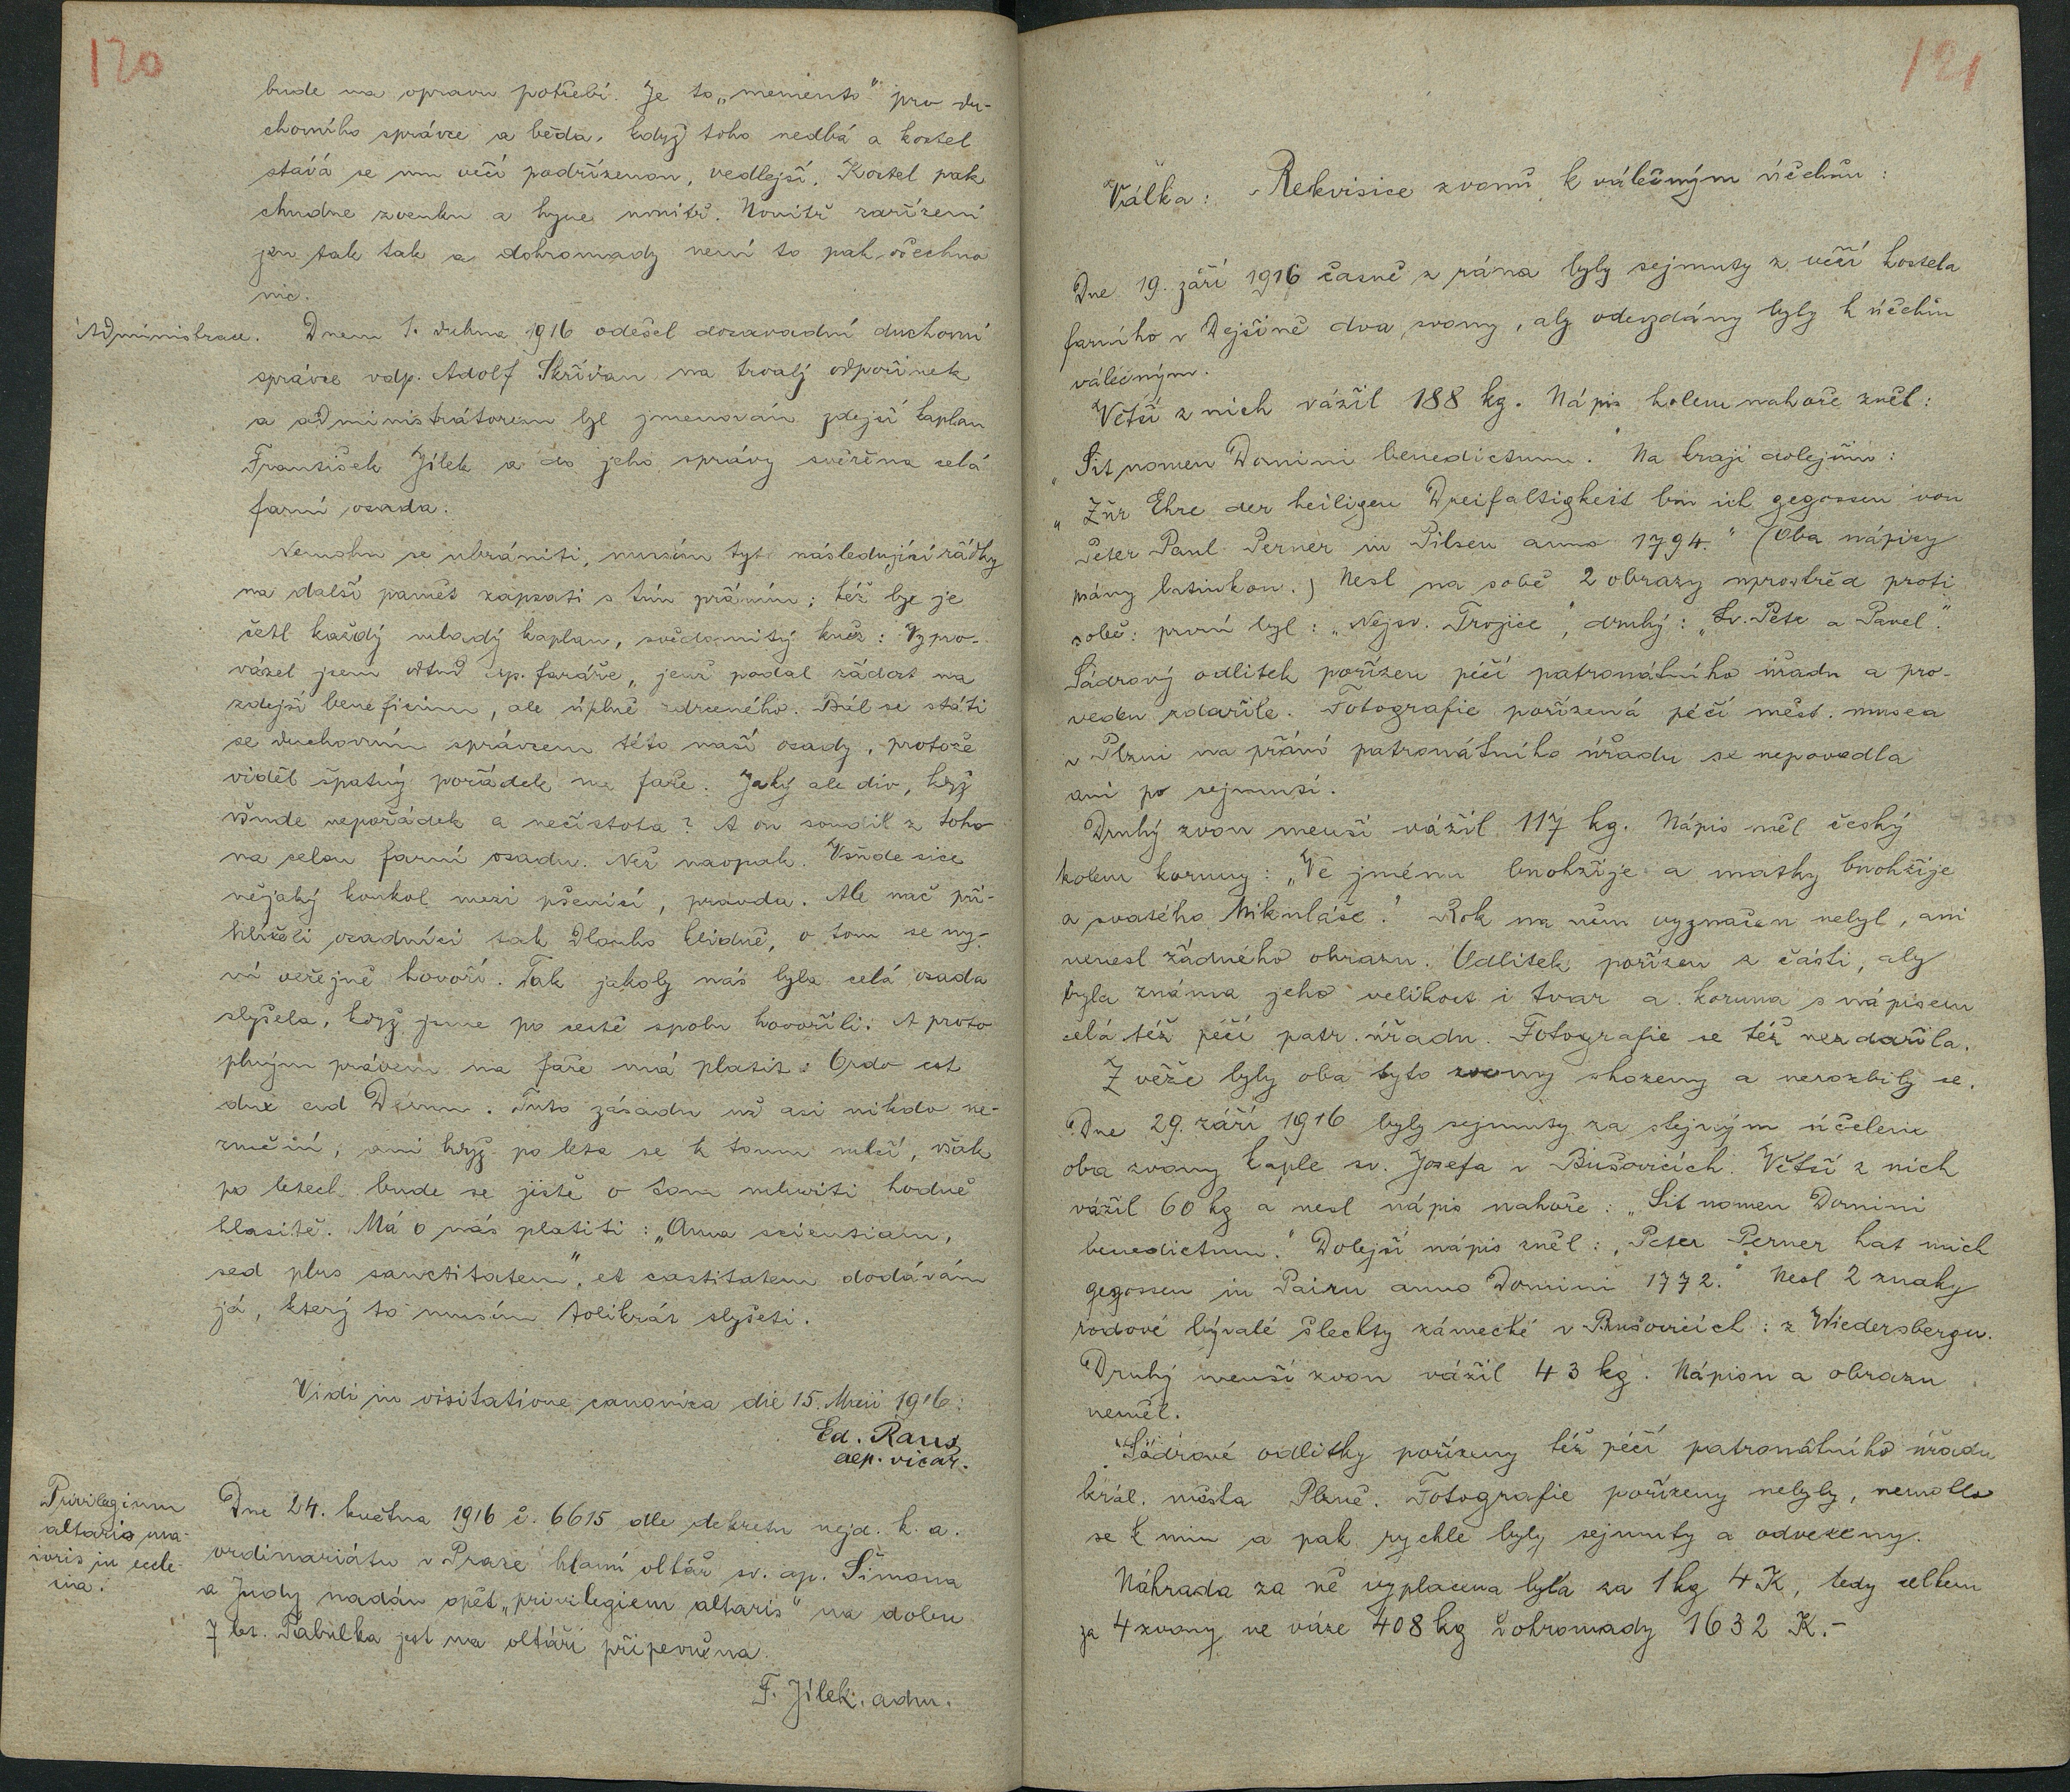 120
bude na opravu potřebí. Je to „memento“ pro du-
chovního správce a běda, když toho nedbá a kostel
stává se mu věcí podřízenou, vedlejší. Kostel pak
chudne zvenku a hyne uvnitř. Vnitř zařízení
jen tak tak a dohromady není to pak všechno
nic.
Administrace.
Dnem 1. dubna 1916 odešel dosavadní duchovní
správce vdp. Adolf Skřivan na trvalý odpočinek
a administrátorem byl jmenován zdejší kaplan
František Jílek a do jeho správy svěřena celá
farní osada.
Nemohu se ubrániti, musím tyto následující řádky
na další paměť zapsati s tím přáním; též by je
četl každý mladý kaplan, svědomitý kněz: Vypro-
vázel jsem odtud dp. faráře, jenž podal žádost na
zdejší beneficium, ale úplně zdrceného. Bál se státi
se duchovním správcem této naší osady, protože
viděl špatný pořádek na faře. Jaký ale div, když
všude nepořádek a nečistota? A on soudil z toho
na celou farní osadu. Než naopak. Všude sice
nějaký koukol mezi pšenicí, pravda. Ale nač při-
hlíželi osadníci tak dlouho klidně, o tom se ny-
ní veřejně hovoří. Tak jakoby nás byla celá osada
slyšela, když jsme po cestě spolu hovořili. A proto
plným právem na faře má platit: Ordo est
dux ad Deum. Tuto zásadu už asi nikdo ne-
zničí, ani když po léta se k tomu mlčí, však
po letech bude se jistě o tom mluviti hodně
hlasitě. Má o nás platiti: „Ama scientiam,
sed plus sanctitatem“, et castitatem dodávám
já, který to musím tolikrát slyšeti.
Vidi in visitatione canonica die 15. Maii 1916:
Ed. Raus
aep. vicar.
Privilegium
altaris ma-
ioris in eccle-
sia.
Dne 24. května 1916 č. 6615 dle dekretu nejd. k. a.
ordinariátu v Praze hlavní oltář sv. ap. Šimona
a Judy nadán opět „privilegiem altaris“ na dobu
7 let. Tabulka jest na oltáři připevněna.
F. Jílek. adm.
121
Válka: Rekvisice zvonů k válečným účelům:
Dne 19. září 1916 časně z rána byly sejmuty z věží kostela
farního v Dejšině dva zvony, aby odevzdány byly k účelům
válečným.
Větší z nich vážil 188 kg. Nápis kolem nahoře zněl:
„Sit nomen Domini benedictum.“ Na kraji dolejším:
„Zur Ehre der heiligen Dreifaltigkeit bin ich gegossen von
Peter Paul Perner in Pilsen anno 1794.“ (Oba nápisy
psány latinkou.) Nesl na sobě 2 obrazy uprostřed proti
sobě: první byl: „Nejsv. Trojice“, druhý: „Sv. Petr a Pavel“.
Sádrový odlitek pořízen péčí patronátního úřadu a pro-
veden zdařile. Fotografie pořízená péčí měst. musea
v Plzni na přání patronátního úřadu se nepovedla
ani po sejmutí.
Druhý zvon menší vážil 117 kg. Nápis měl český
kolem koruny: „Ve jménu bnohžije a mathy bnohžije
a svatého Mikuláše.“ Rok na něm vyznačen nebyl, ani
nenesl žádného obrazu. Odlitek pořízen z části, aby
byla známa jeho velikost i tvar a koruna s nápisem
celá též péčí patr. úřadu. Fotografie se též nezdařila.
Z věže byly oba tyto zvony shozeny a nerozbily se.
Dne 29. září 1916 byly sejmuty za stejným účelem
oba zvony kaple sv. Josefa v Bušovicích. Větší z nich
vážil 60 kg a nesl nápis nahoře: „Sit nomen Domini
benedictum.“ Dolejší nápis zněl: „Peter Perner hat mich
gegossen in Pilsen anno Domini 1772.“ Nesl 2 znaky
rodové bývalé šlechty zámecké v Bušovicích: z Wiedersbergu.
Druhý menší zvon vážil 43 kg. Nápisu a obrazu
neměl.
Sádrové odlitky pořízeny též péčí patronátního úřadu
král. města Plzně. Fotografie pořízeny nebyly, nemohlo
se k nim a pak rychle byly sejmuty a odvezeny.
Náhrada za ně vyplacena byla za 1 kg 4 K, tedy celkem
za 4 zvony ve váze 408 kg dohromady 1632 K.–